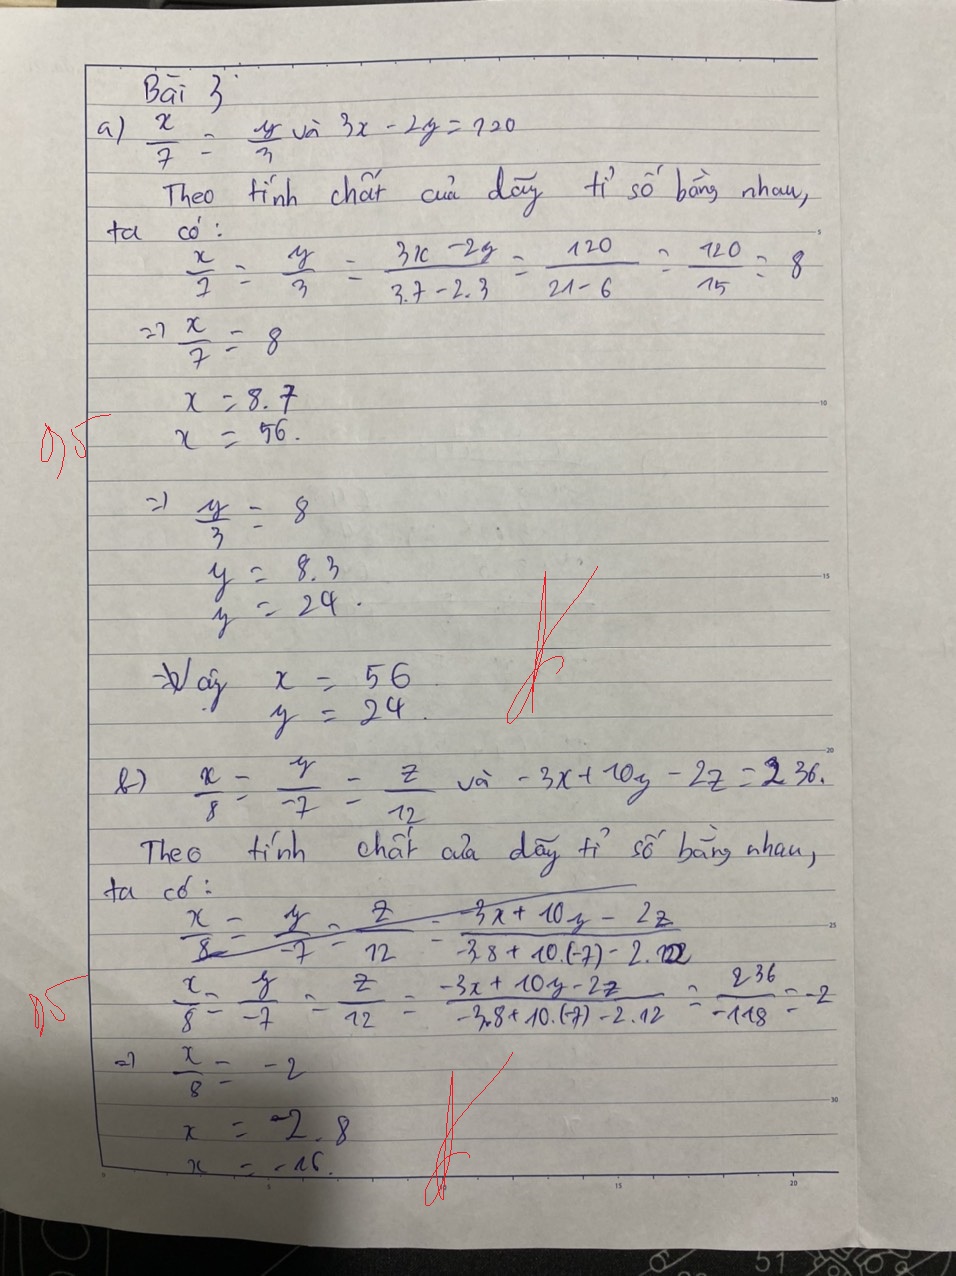 Bài 3
a) x/7 = y/3 và 3x - 2y = 120
Theo tính chất của dãy tỉ số bằng nhau,
ta có:
x/7 = y/3 = (3x - 2y)/(3.7 - 2.3) = 120/(21 - 6) = 120/15 = 8
=> x/7 = 8
x = 8.7
0,5
x = 56.
=> y/3 = 8
y = 8.3
y = 24.
=> Vậy x = 56
y = 24.
b) x/8 = y/-7 = z/12 và -3x + 10y - 2z = 236.
Theo tính chất của dãy tỉ số bằng nhau,
ta có:
x/8 = y/-7 = z/12 = (-3x + 10y - 2z)/(-3.8 + 10.(-7) - 2.12)
0,5
x/8 = y/-7 = z/12 = (-3x + 10y - 2z)/(-3.8 + 10.(-7) - 2.12) = 236/-118 = -2
=> x/8 = -2
x = -2.8
x = -16.
5
10
15
20
25
30
0 5 10 15 20
51